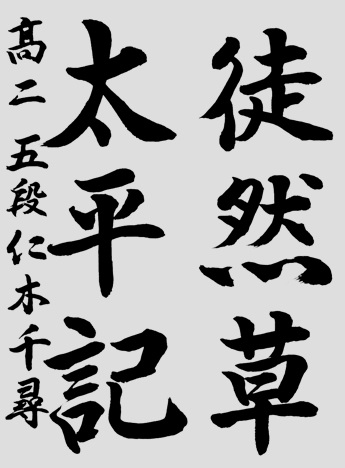 徒然草
太平記
高二 五段 仁木千尋